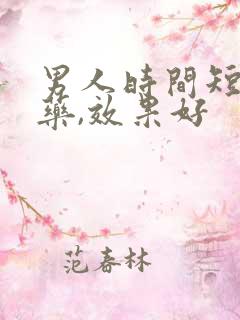 男人時間短
藥,效果好
范春林